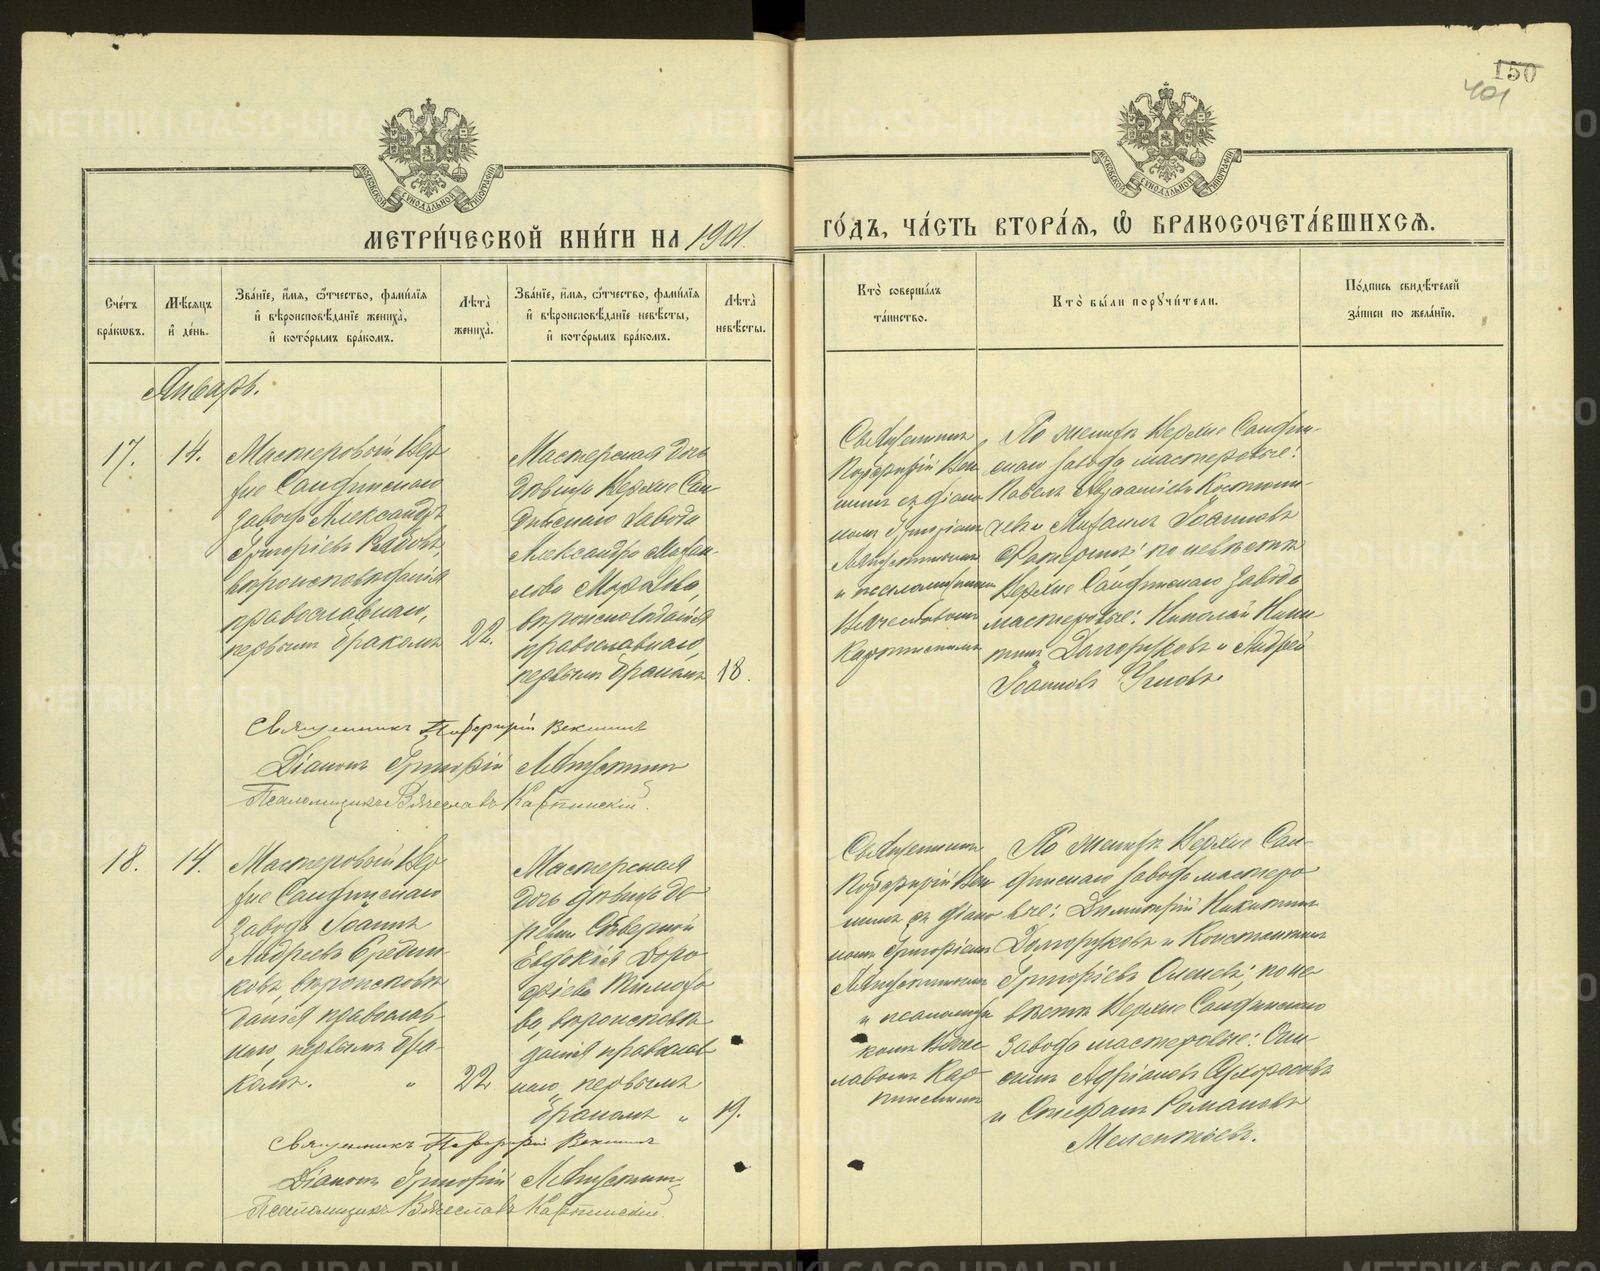 150
401
МОСКОВСКОЙ СѴНОДАЛЬНОЙ ТИПОГРАФІИ
МОСКОВСКОЙ СѴНОДАЛЬНОЙ ТИПОГРАФІИ
МЕТРИ́ЧЕСКОЙ КНИ́ГИ НА 1901 ГО́ДЪ, ЧА́СТЬ ВТОРА́Я, Ѿ БРАКОСОЧЕТА́ВШИХСЯ.
Сче́тъ
бра́ковъ.
Мѣ́сяцъ
и҆ де́нь.
Зва́нїе, и҆́мя, ѻ҆́тчество, фами́лїя
и҆ вѣроисповѣ́данїе жениха̀,
и҆ кото́рымъ бра́комъ.
Лѣ́та
жениха̀.
Зва́нїе, и҆́мя, ѻ҆́тчество, фами́лїя
и҆ вѣроисповѣ́данїе невѣ́сты,
и҆ кото́рымъ бра́комъ.
Лѣ́та
невѣ́сты.
Кто̀ соверша́лъ
та́инство.
Кто̀ бы́ли порꙋчи́тели.
По́дпись свидѣ́телей
за́писи по жела́нїю.
Январь.
17.
14.
Мастеровый Вер
хне Салдинскаго
завода Александръ
Григоріевъ
вѣроисповѣданія
православнаго,
первымъ бракомъ
22.
Мастерская дочь
дѣвица Верхне Сал
динскаго завода
Александра Михаи-
лова
вѣроисповѣданія
православнаго,
первымъ бракомъ
18.
Священникъ
Порфирій Век
шинъ съ діако
номъ Григоріемъ
и псаломщикомъ
Вячеславомъ
Карпинскимъ
По женихѣ Верхне Салдин-
скаго завода мастеровые:
Павелъ
Михаилъ Іоанновъ
по невѣстѣ
Верхне Салдинскаго завода
мастеровые: Николай Ники-
тинъ Долгоруковъ и Андрей
Іоанновъ
Священникъ Порфирій Векшинъ
Діаконъ Григорій
Псаломщикъ Вячеславъ Карпинскій.
18.
14.
Мастеровый Вер
хне Салдинскаго
завода Іоаннъ
Андреевъ
вѣроисповѣ
данія православ-
наго, первымъ бра-
комъ. „
22
Мастерская
дочь дѣвица де-
ревни Сѣверной
Евдокія Доро
феева Тимофе
ва, вѣроисповѣ
данія православ
наго, первымъ
бракомъ „
19.
Священникъ
Порфирій Век
шинъ съ діако
номъ Григоріемъ
и псаломщи
комъ Вяче
славомъ Кар
пинскимъ
По женихѣ Верхне Сал-
динскаго завода мастеро
вые: Димитрій Никитинъ
Долгоруковъ и Константинъ
Григоріевъ по не
вѣстѣ Верхне Салдинскаго
завода мастеровые:
Адріановъ Сухоросовъ
и Стефанъ Романовъ
Мелентьевъ.
Священникъ Порфирій Векшинъ
Діаконъ Григорій
Псаломщикъ Вячеславъ Карпинскій.
METRIKI.GASO-URAL.RU